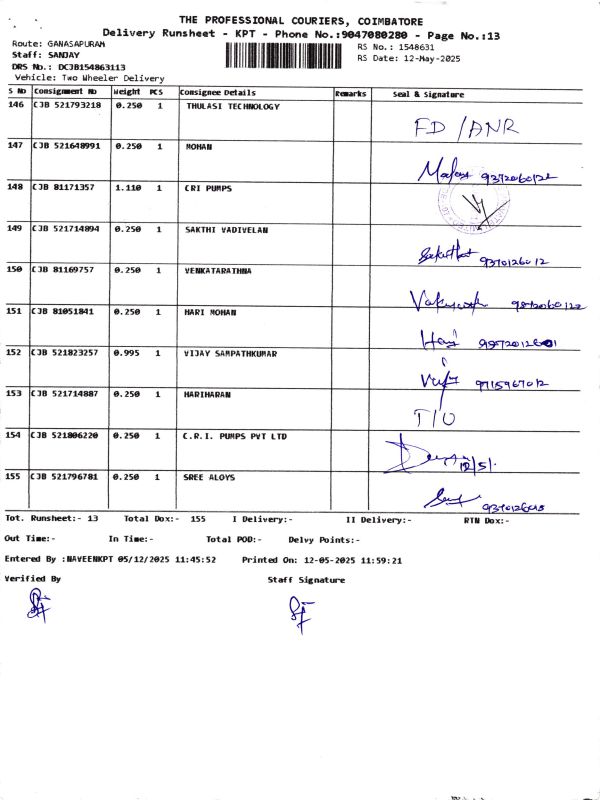 THE PROFESSIONAL COURIERS, COIMBATORE
Delivery Runsheet - KPT - Phone No.:9047080280 - Page No.:13
Route: GANASAPURAM
RS No.: 1548631
Staff: SANJAY
RS Date: 12-May-2025
DRS No.: DCJB154863113
Vehicle: Two Wheeler Delivery
S No Consignment No Weight PCS Consignee Details Remarks Seal & Signature
146 CJB 521793218 0.250 1 THULASI TECHNOLOGY
FD/ANR
147 CJB 521648991 0.250 1 MOHAN
148 CJB 81171357 1.110 1 CRI PUMPS
149 CJB 521714894 0.250 1 SAKTHI VADIVELAN
150 CJB 81169757 0.250 1 VENKATARATHNA
151 CJB 81051841 0.250 1 HARI MOHAN
Hari
152 CJB 521823257 0.995 1 VIJAY SAMPATHKUMAR
9715967012
153 CJB 521714887 0.250 1 HARIHARAN
T/O
154 CJB 521806220 0.250 1 C.R.I. PUMPS PVT LTD
12/5/.
155 CJB 521796781 0.250 1 SREE ALOYS
Tot. Runsheet:- 13 Total Dox:- 155 I Delivery:- II Delivery:- RTN Dox:-
Out Time:- In Time:- Total POD:- Delvy Points:-
Entered By :NAVEENKPT 05/12/2025 11:45:52 Printed On: 12-05-2025 11:59:21
Verified By Staff Signature